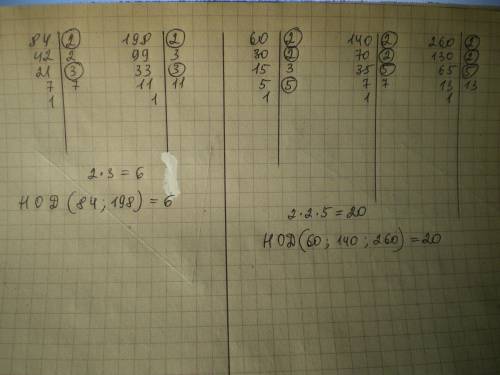 84 | 2 198 | 2 60 | 2 140 | 2 260 | 2
42 | 2 99 | 3 30 | 2 70 | 2 130 | 2
21 | 3 33 | 3 15 | 3 35 | 5 65 | 5
7 | 7 11 | 11 5 | 5 7 | 7 13 | 13
1 | 1 | 1 | 1 | 1 |
2·3 = 6
НОД (84; 198) = 6
2·2·5 = 20
НОД (60; 140; 260) = 20